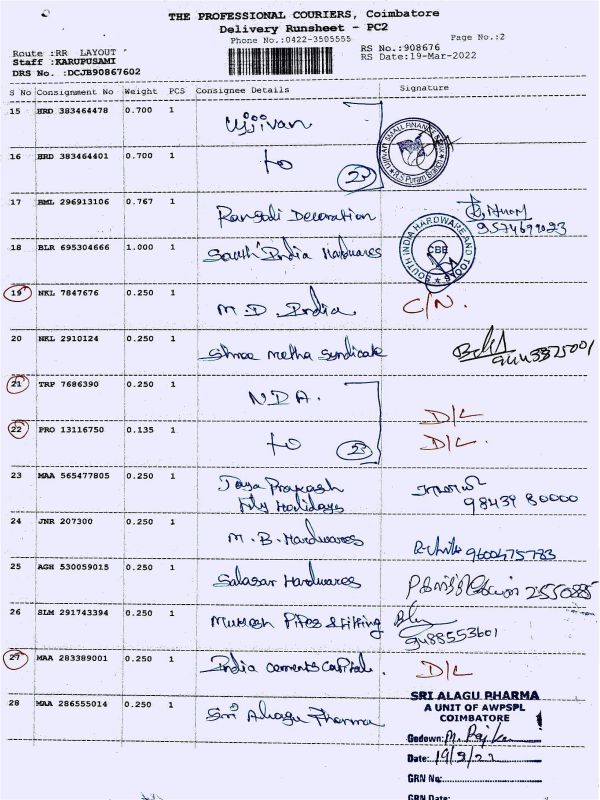 THE PROFESSIONAL COURIERS, Coimbatore
Delivery Runsheet - PC2
Phone No.:0422-3505555
Page No.:2
Route :RR LAYOUT
Staff :KARUPUSAMI
DRS No. :DCJB90867602
RS No.:908676
RS Date:19-Mar-2022
S No Consignment No Weight PCS Consignee Details Signature
15 HRD 383464478 0.700 1 Ujjivan
UJJIVAN SMALL FINANCE BANK
R.S Puram Branch
16 HRD 383464401 0.700 1 to
17 BML 296913106 0.767 1 Rangoli Decoration
18 BLR 695304666 1.000 1 South India Hardwares
SOUTH INDIA HARDWARE AND TOOLS
CBE
19 NKL 7847676 0.250 1 M.D. India C/N.
20 NKL 2910124 0.250 1 Shree metha Syndicate
21 TRP 7686390 0.250 1 NDA. D/L
22 PRO 13116750 0.135 1 to 23 D/L.
23 MAA 565477805 0.250 1 Jaya Prakash
Holidays
98439 80000
24 JNR 207300 0.250 1 M.B. Hardwares
9600475783
25 AGH 530059015 0.250 1 Salasar Hardwares
26 SLM 291743394 0.250 1 Mukesh Pipes & Fitting
9488553601
27 MAA 283389001 0.250 1 India cements capital. D/L
28 MAA 286555014 0.250 1 Sri Alagu Pharma
SRI ALAGU PHARMA
A UNIT OF AWPSPL
COIMBATORE
Godown:
Date: 19/3/22
GRN No:
GRN Date: